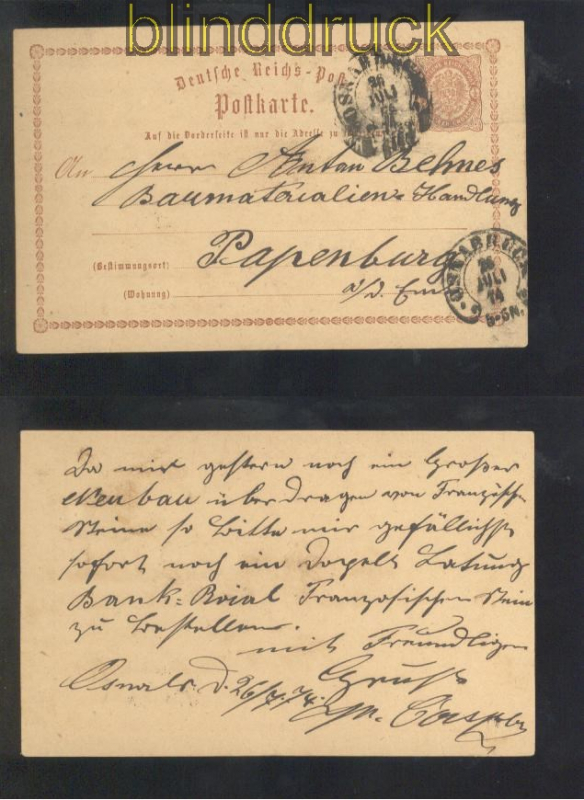 blinddruck
Deutsche Reichs-Post
Postkarte.
Auf die Vorderseite ist nur die Adresse zu
OSNABRUECK
26
JULI
An Herrn Anton Behnes
Baumaterialien-Handlung
Papenburg
(Bestimmungsort)
a/d. Ems
(Wohnung)
OSNABRUECK
26
JULI
74
5-6N.
Da mir gestern noch ein Großer
Neubau überdragen von Französche
Steine so bitte mir gefällichst
sofort noch ein Dopelt Latung
Bank-Roial Französischen Stein
zu bestellen.
mit Freundligen
Gruß
Osnab. d. 26/7. 74.